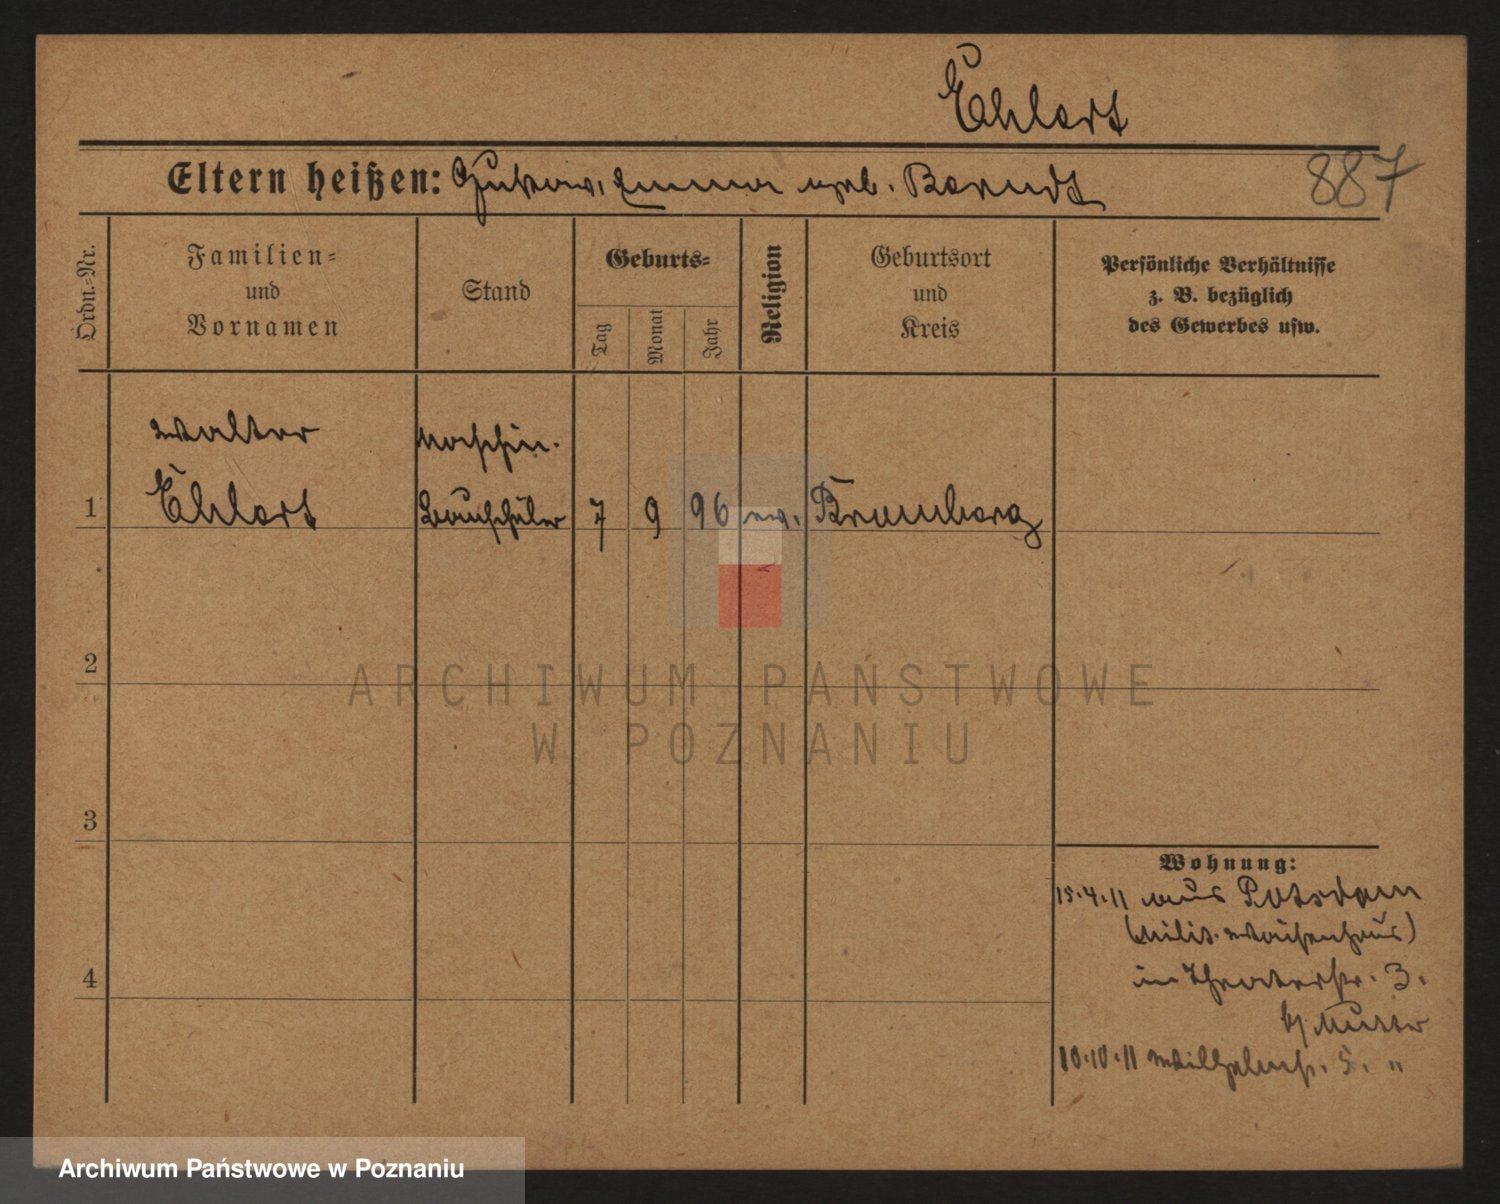 Ehlert
Eltern heißen: Gustav, Emma geb. Berndt
887
Ordn.-Nr.
Familien-
und
Vornamen
Stand
Geburts-
Tag
Monat
Jahr
Religion
Geburtsort
und
Kreis
Persönliche Verhältnisse
z. B. bezüglich
des Gewerbes usw.
Walter
Maschin.
1 Ehlert Bauschüler 7 9 96 ev. Bromberg
2
3
4
Wohnung:
15.4.11 aus Potsdam
(Milit. Waisenhaus)
in Theaterstr. 3.
b/ Mutter
10.10.11 Wilhelmstr. 5. "
ARCHIWUM PAŃSTWOWE
W POZNANIU
Archiwum Państwowe w Poznaniu